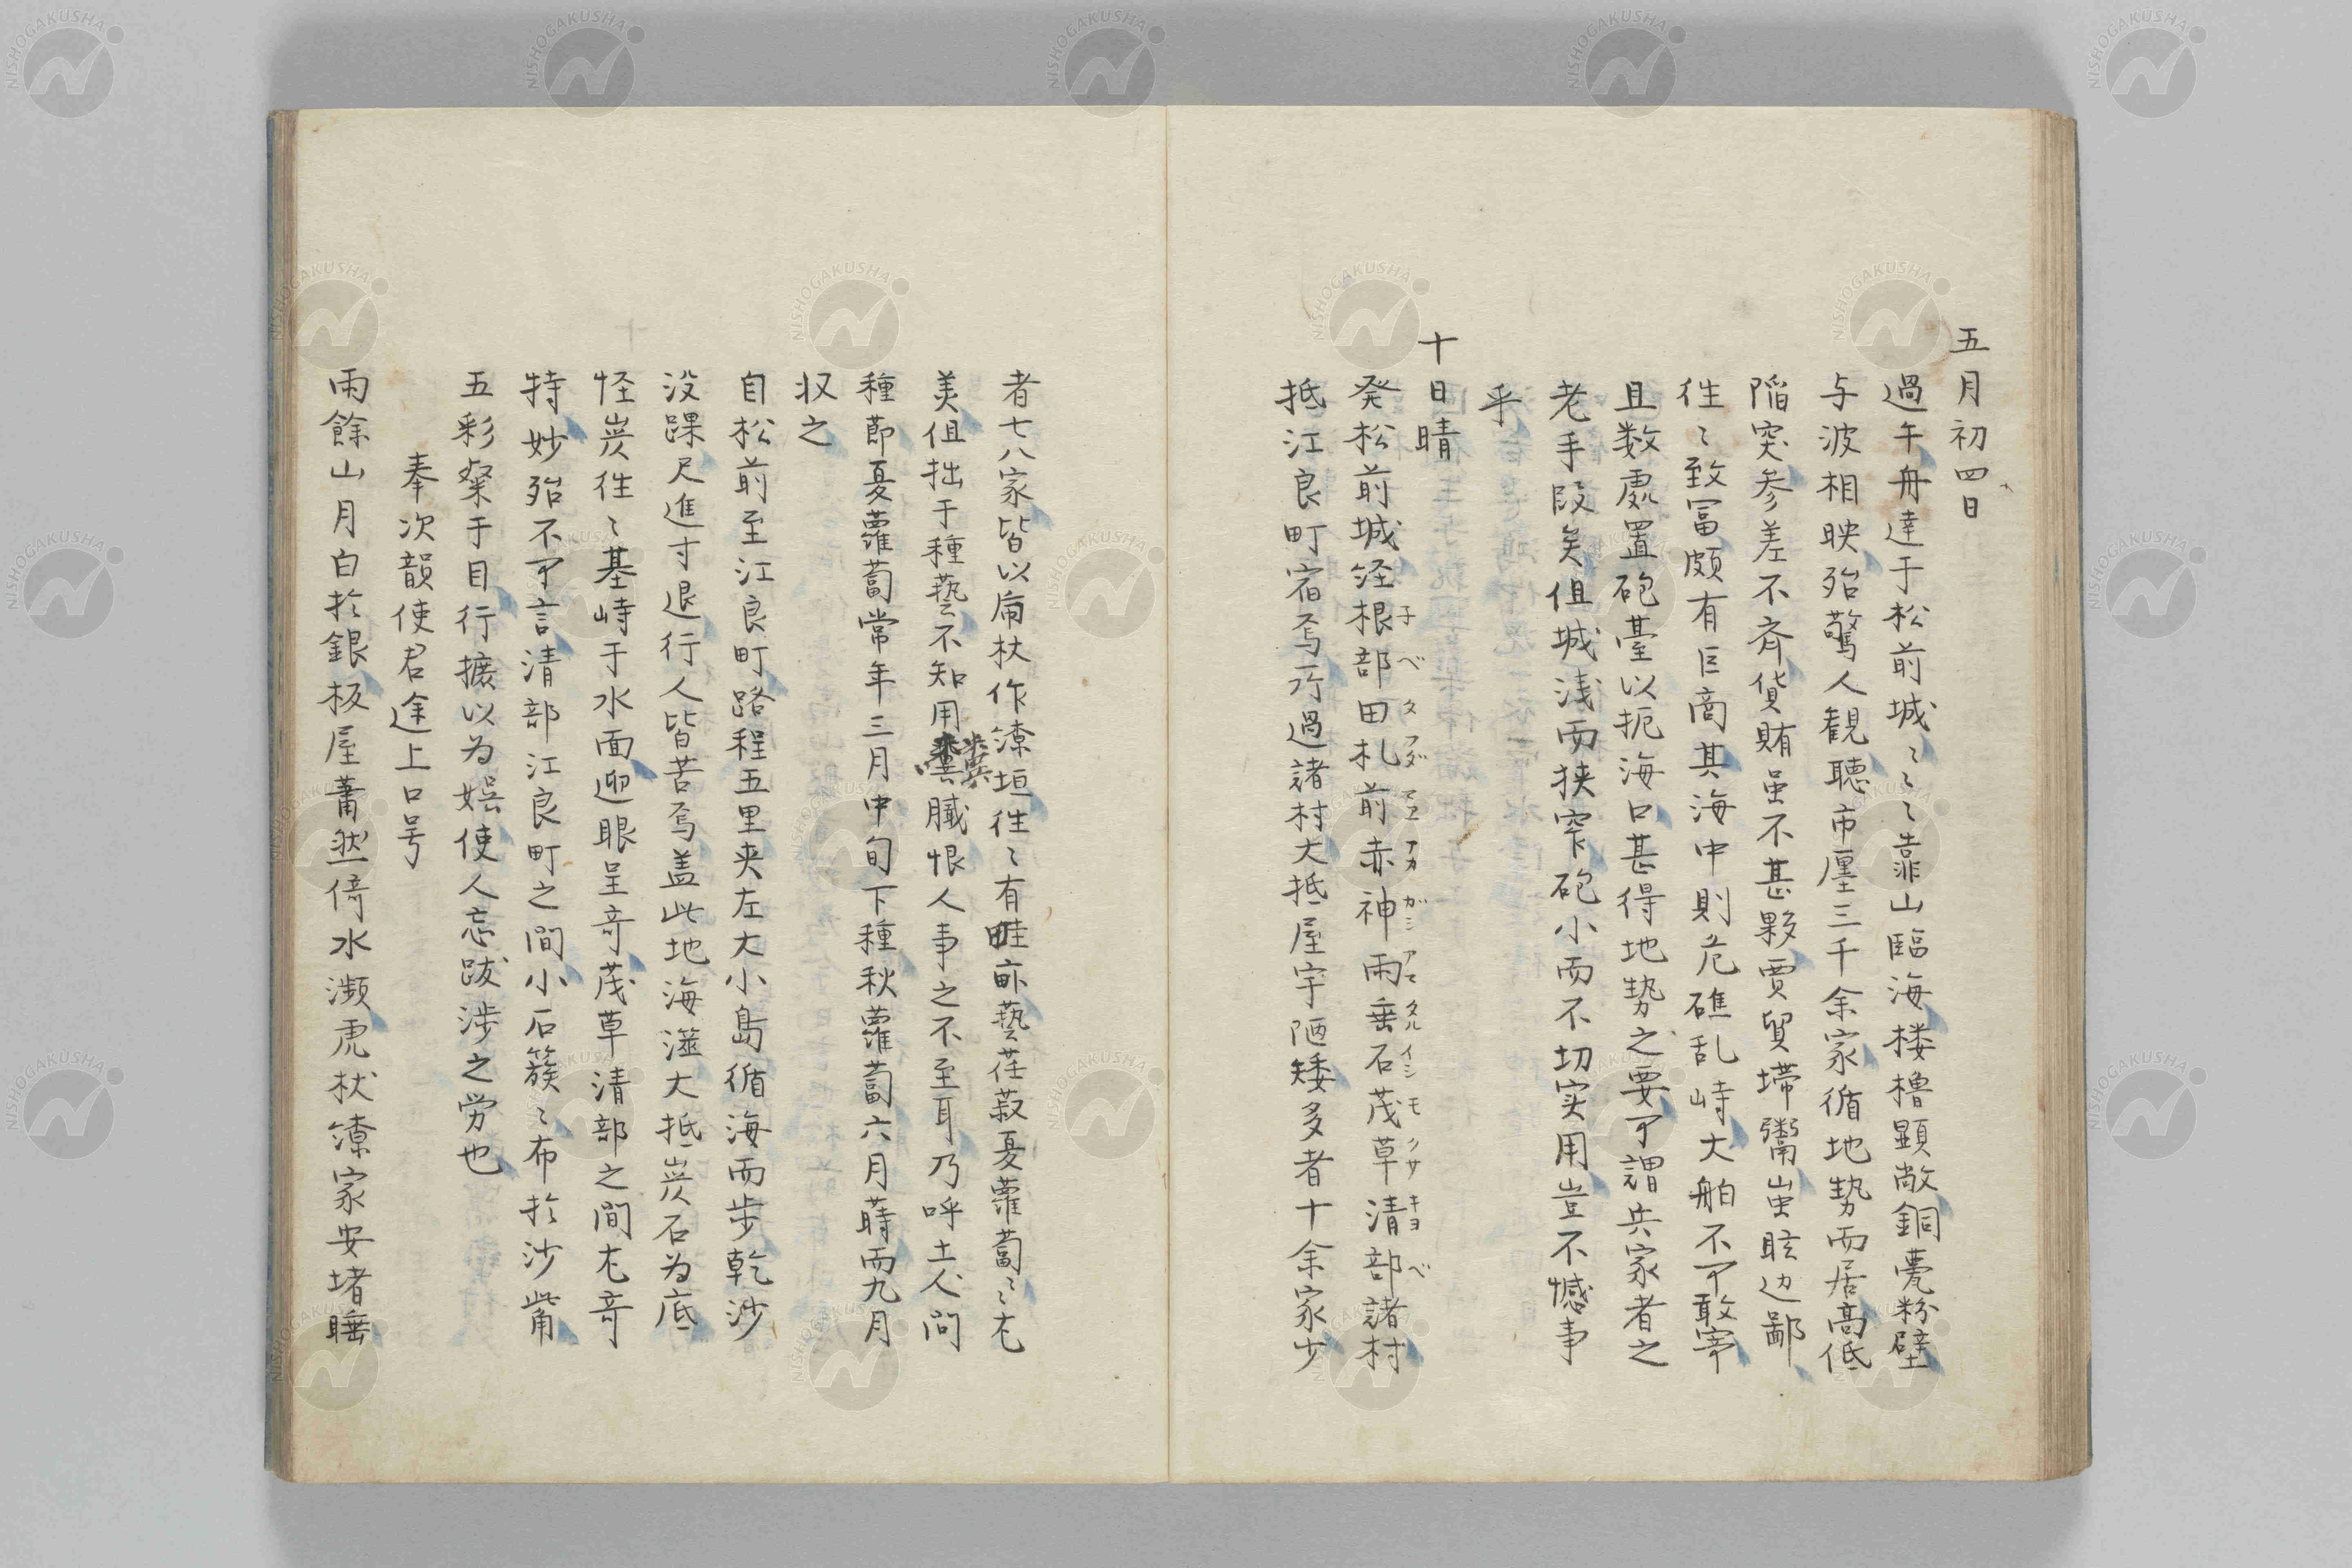 五月初四日
過午舟達于松前城〻〻靠山臨海楼櫓顕敞銅甍粉壁
与波相映殆驚人観聴市廛三千余家循地勢而居高低
陥突参差不斉貨賄虽不甚夥賈貿墆鬻蚩眩边鄙
往〻致冨頗有巨商其海中則危礁乱峙大舶不可敢寄
且数處置砲臺以扼海口甚得地势之要可謂兵家者之
老手段矣但城浅而挟窄砲小而不切实用豈不憾事
乎
十日晴
発松前城経根部田札前赤神雨垂石茂草清部諸村
子ベタ フダマエ アカガミ アマタルイシ モクサ キヨベ
抵江良町宿焉所過諸村大抵屋宇陋矮多者十余家少
者七八家皆以虎杖作藩垣往〻有畦畝藝荏菽夏蘿蔔〻尤
美但拙于種藝不知用糞膱恨人事之不至耳乃呼土人問
種節夏蘿蔔常年三月中旬下種秋蘿蔔六月蒔而九月
収之
自松前至江良町路程五里夾左大小島循海而歩乾沙
没踝尺進寸退行人皆苦焉盖此地海澨大抵炭石为底
怪炭往〻基峙于水面迎眼呈奇茂草清部之間尤奇
特妙殆不可言清部江良町之間小石簇〻布於沙觜
五彩粲于目行攗以为娯使人忘跋渉之労也
奉次韻使君途上口号
雨餘山月白於銀板屋蕭然倚水瀕虎杖藩家安堵睡